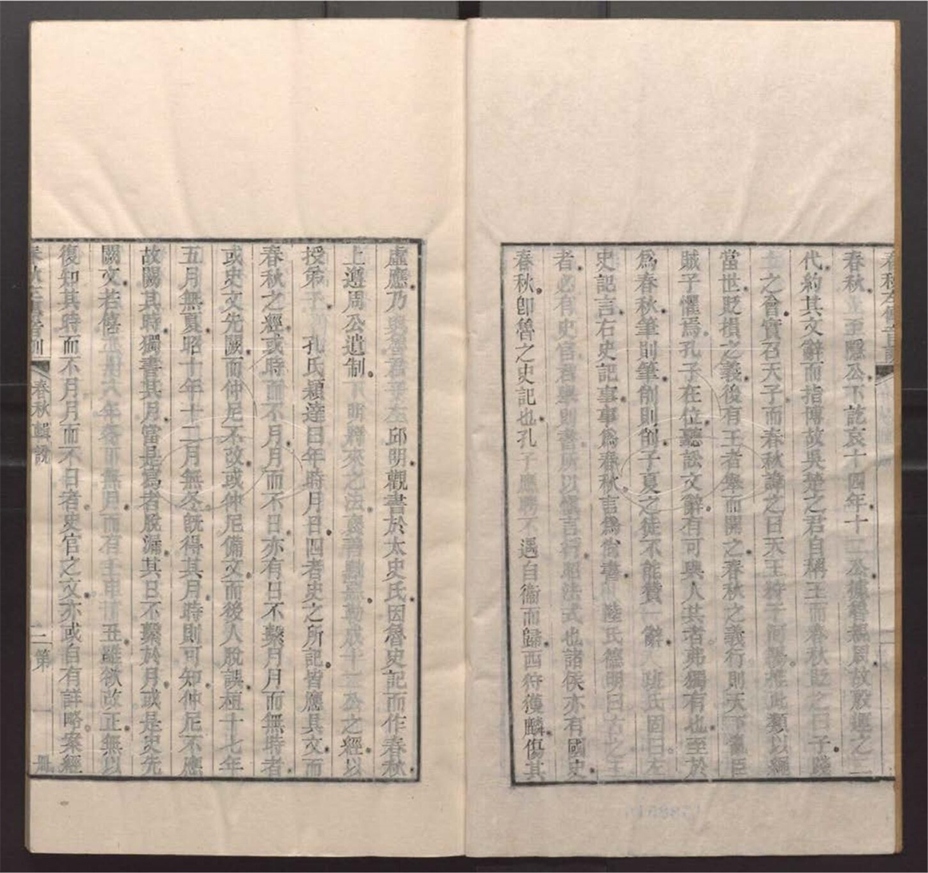 春秋上至隱公下訖哀十四年十公據魯親周故殷運之三
代約其文辭而指博故吳楚之君自稱王而春秋貶之曰子踐
土之會實召天子而春秋諱之曰天王狩于河陽推此類以繩
當世貶損之義後有王者舉而開之春秋之義行則天下亂臣
賊子懼焉孔子在位聽訟文辭有可與人共者弗獨有也至於
爲春秋筆則筆削則削子夏之徒不能贊一辭班氏固曰左
史記言右史記事事爲春秋言爲尚書陸氏德明曰古之王
者必有史官君舉則書所以愼言行昭法式也諸侯亦有國史
春秋卽魯之史記也孔子應聘不遇自衞而歸西狩獲麟傷其
虛應乃與魯君子左邱明觀書於太史氏因魯史記而作春秋
上遵周公遺制下明將來之法襃善黜惡勒成十二公之經以
授弟子孔氏穎達曰年時月日四者史之所記皆應具文而
春秋之經或時而不月月而不日亦有日不繫月月而無時者
或史文先闕而仲尼不改或仲尼備文而後人脫誤桓十七年
五月無夏昭十年十二月無冬旣得其月時則可知仲尼不應
故闕其時獨書其月當是寫者脫漏其日不繫於月或是史先
闕文若僖二十八年冬下無月而有壬申丁丑雖欲改正無以
復知其時而不月月而不日者史官之文亦或自有詳略案經
春秋輯說
二第
冊